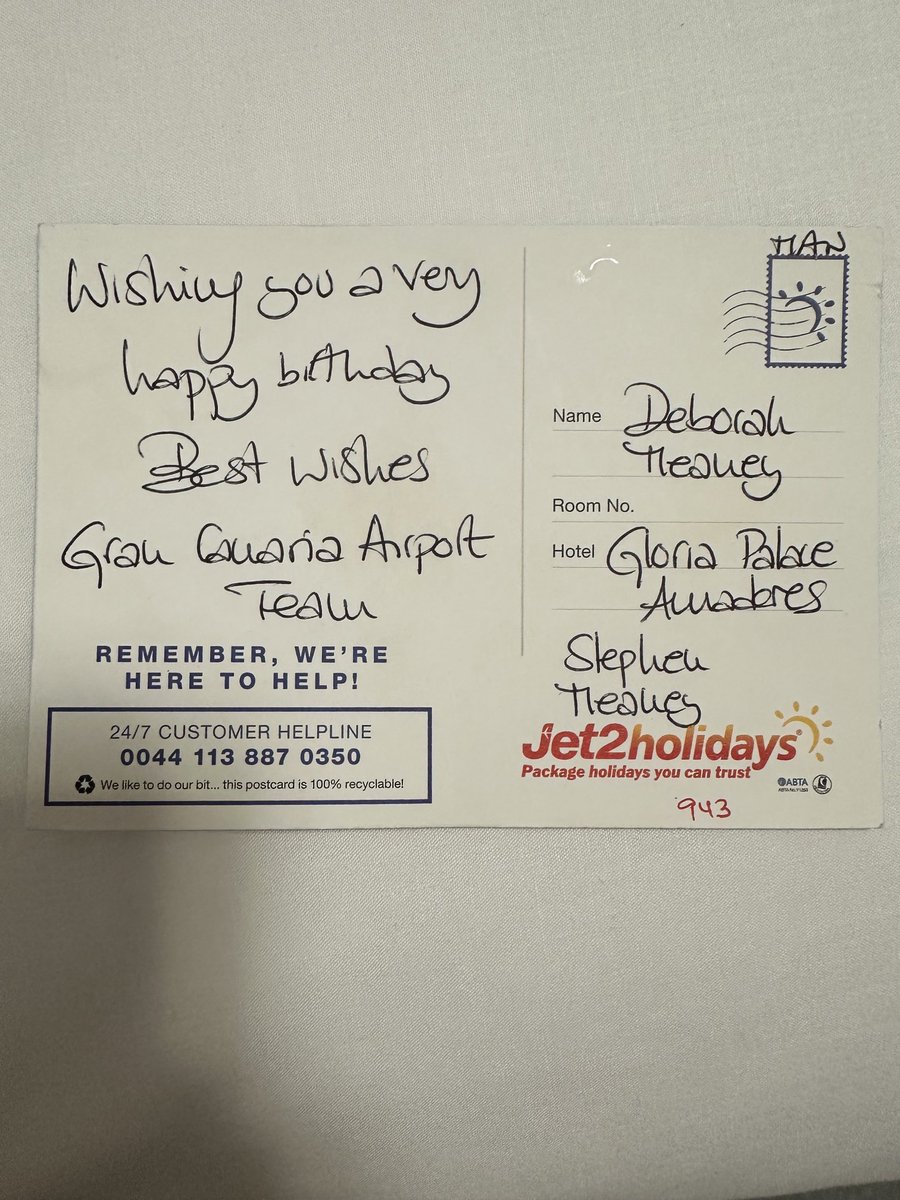 Wishing you a very
happy birthday
Best Wishes
Gran Canaria Airport
Team
REMEMBER, WE'RE
HERE TO HELP!
24/7 CUSTOMER HELPLINE
0044 113 887 0350
We like to do our bit... this postcard is 100% recyclable!
MAN
Name Deborah
Meaney
Room No.
Hotel Gloria Palace
Amadores
Stephen
Meaney
Jet2holidays
Package holidays you can trust
ABTA
943